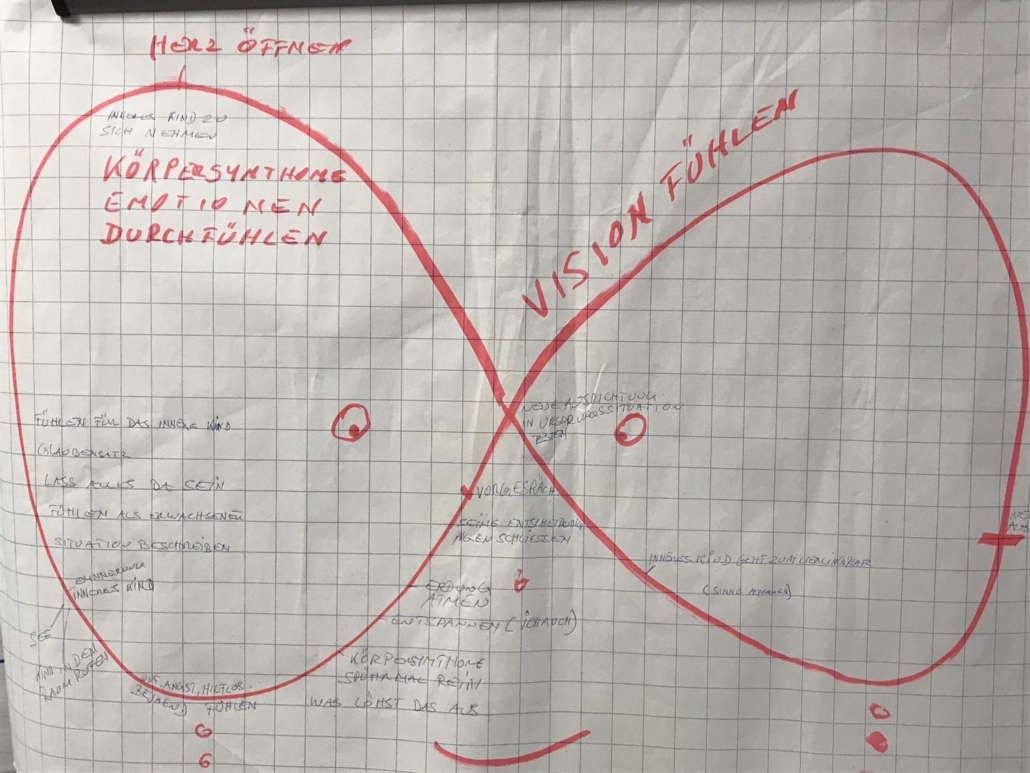 HERZ ÖFFNEN
INNERES KIND ZU
SICH NEHMEN
KÖRPERSYMTHOME
EMOTIONEN
DURCHFÜHLEN
VISION FÜHLEN
NEUE AUSRICHTUNG
IN URSPRUNGSSITUATION
TESTEN
FÜHLEN FÜR DAS INNERE KIND
GLAUBENSATZ
LASS ALLES DA SEIN
FÜHLEN ALS ERWACHSENER
SITUATION BESCHREIBEN
ERINNERUNG
INNERES KIND
SEE
KIND IN DEN
RAUM RUFEN
ANGST, HILFLOS
FÜHLEN
VORGESPRÄCH
KEINE ENTSCHEIDUNG
AUGEN SCHLIESSEN
ERDUNG
ATMEN
ENTSPANNEN
KÖRPERSYMTHOME
SPÜHR MAL REIN
WAS LÖHST DAS AUS
INNERES KIND GEHT ZUM LIEBLINGSPLATZ
(SINNE